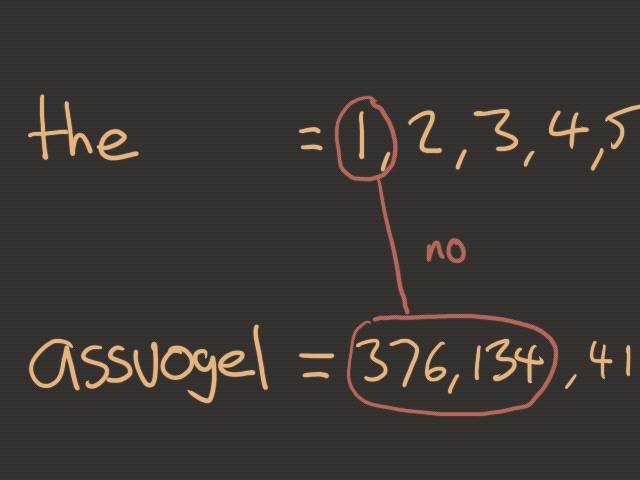 the = 1, 2, 3, 4, 5
no
assvogel = 376,134, 41